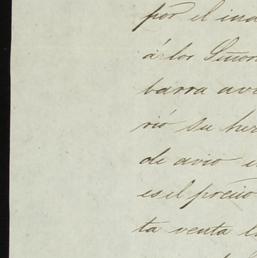 por el ind
á los Señor
barra avi
rió su her
de avio e
es el precio
ta venta l